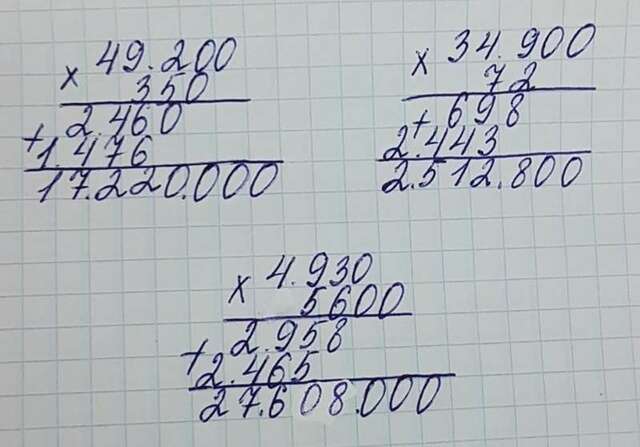 × 49.200
350
2.460
+ 1.476
17.220.000
× 34.900
72
+ 698
2.443
2.512.800
× 4.930
5600
2.958
+ 2.465
27.608.000